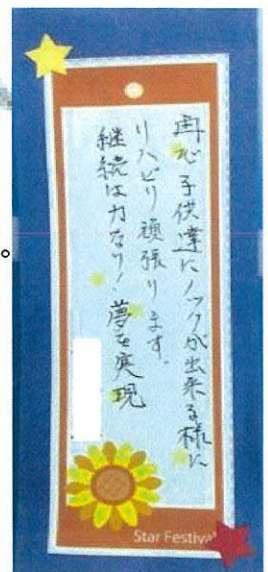 再び子供達にノックが出来る様に
リハビリ頑張ります。
継続は力なり！夢を実現
Star Festival